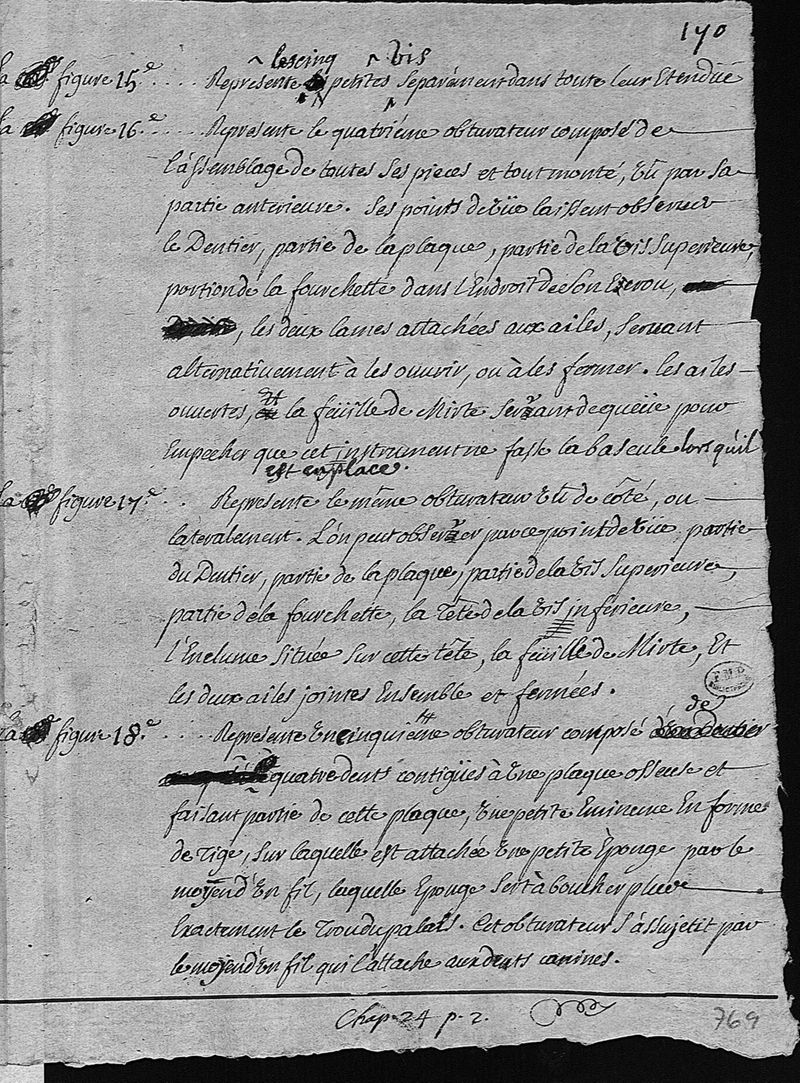 170
les cinq vis
La figure 15.e .... Represente petites separément dans toute leur Etendüe
La figure 16.e ..... Represente le quatriéme obturateur composé de
l'assemblage de toutes ses pieces et tout monté, vû par sa
partie anterieure. Ses points de vüe laissent observer
le Dentier, partie de la plaque, partie de la vis Superieure,
portion de la fourchette dans l'Endroit de son Ecrou,
, les deux lames attachées aux ailes, servant
alternativement à les ouvrir, ou à les fermer. les ailes
ouvertes, et la feüille de Mirte servant de queüe pour
Empecher que cet instrument ne fasse la bascule lorsqu'il
est en place.
La figure 17.e .. Represente le même obturateur vû de côté, ou
lateralement. L'on peut observer par ce point de vüe, partie
du Dentier, partie de la plaque, partie de la vis Superieure,
partie de la fourchette, la Tête de la vis inférieure,
l'Enclume située sur cette tête, la feuille de Mirte, Et
les deux ailes jointes Ensemble et fermées.
de
La figure 18.e .... Represente un cinquiéme obturateur composé d'un Dentier
quatre dents contigües à une plaque osseuse et
faisant partie de cette plaque, une petite Eminence En forme
de Tige, sur laquelle est attachée une petite Éponge par le
moyen d'un fil, laquelle Eponge sert à boucher plus
Exactement le Trou du palais. Cet obturateur s'assujetit par
le moyen d'un fil qui l'attache aux dents canines.
Chap. 24 p. 2.
769